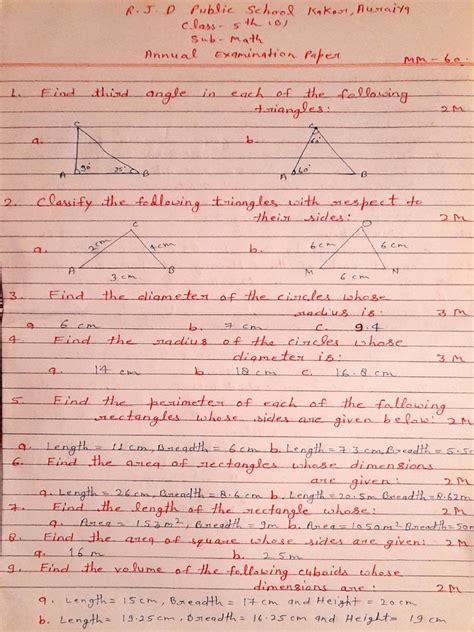 R. J. D Public School Kakor, Auraiya
Class - 5th (B)
Sub - Math
Annual Examination Paper
MM - 60
1. Find third angle in each of the following
triangles: 2M
a. C A 90° 35° B b. C 60° A 60° B
2. Classify the following triangles with respect to
their sides: 2M
a. C 2cm 4cm A 3 cm B b. O 6cm 6cm M 6 cm N
3. Find the diameter of the circles whose
radius is: 3M
a 6 cm b. 7 cm c. 9.4
4. Find the radius of the circles whose
diameter is: 3M
a. 14 cm b. 18 cm c. 16.8 cm
5. Find the perimeter of each of the following
rectangles whose sides are given below: 2M
a. Length = 11 cm, Breadth = 6cm b. Length = 7.3 cm, Breadth = 5.5c
6. Find the area of rectangles whose dimensions
are given: 2M
a. Length = 26cm, Breadth = 8.6cm b. Length = 20.5m Breadth = 8.62m
7. Find the length of the rectangle whose: 2M
a. Area = 153m², Breadth = 9m b. Area = 1050m² Breadth = 50m
8. Find the area of square whose sides are given: 2M
a. 16m b. 25m
9. Find the volume of the following cuboids whose
dimensions are: 2M
a. Length = 15cm, Breadth = 17 cm and Height = 20cm
b. Length = 19.25cm, Breadth = 16.25cm and Height = 19 cm